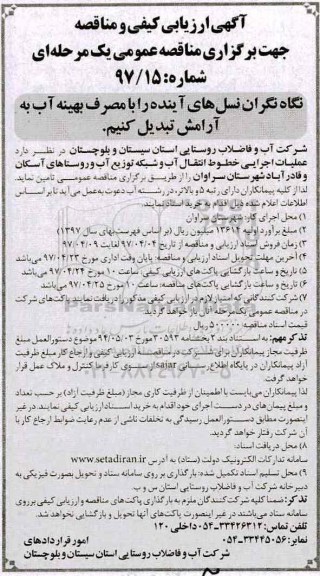 آگهی ارزیابی کیفی و مناقصه
جهت برگزاری مناقصه عمومی یک مرحله‌ای
شماره: ۹۷/۱۵
نگاه نگران نسل‌های آینده را با مصرف بهینه آب به
آرامش تبدیل کنیم.
شرکت آب و فاضلاب روستایی استان سیستان و بلوچستان در نظر دارد
عملیات اجرایی خطوط انتقال آب و شبکه توزیع آب و روستاهای آسکان
و قادرآباد شهرستان سراوان را از طریق برگزاری مناقصه عمومی تامین نماید.
لذا از کلیه پیمانکاران دارای رتبه ۵ و بالاتر در رشته آب دعوت به‌عمل می‌آید تا بر اساس
اطلاعات اعلام شده ذیل اقدام به خرید اسناد نمایند.
۱) محل اجرای کار: شهرستان سراوان
۲) مبلغ برآورد اولیه ۱۳۶۱۲ میلیون ریال (بر اساس فهرست‌بهای سال ۱۳۹۷)
۳) زمان فروش اسناد ارزیابی و مناقصه از تاریخ ۹۷/۰۴/۰۴ لغایت ۹۷/۰۴/۰۹
۴) آخرین مهلت تحویل اسناد ارزیابی و مناقصه: پایان وقت اداری مورخ ۹۷/۰۴/۲۳ می‌باشد
۵) تاریخ و ساعت بازگشایی پاکت‌های ارزیابی کیفی: ساعت ۱۰ مورخ ۹۷/۰۴/۲۴ می‌باشد
۶) تاریخ و ساعت بازگشایی پاکت‌های مناقصه: ساعت ۱۰ مورخ ۹۷/۰۴/۲۵ می‌باشد
۷) شرکت‌کنندگانی که امتیاز لازم در ارزیابی کیفی مذکور را دریافت نمایند پاکت‌های شرکت
در مناقصه عمومی یک مرحله‌ای آنان باز خواهد گردید.
قیمت اسناد مناقصه: ۵۰۰۰۰۰ ریال
تذکر مهم: به استناد بند ۲ بخشنامه ۳۰۵۹۳ مورخ ۹۴/۰۵/۰۳ موضوع دستورالعمل مبلغ
ظرفیت مجاز پیمانکاران برای شرکت در مناقصه، ارزیابی کیفی و ارجاع کار مبلغ ظرفیت
آزاد پیمانکاران در پایگاه اطلاع رسانی sajar از سوی کارفرما کنترل و ملاک عمل قرار
خواهد گرفت.
لذا پیمانکاران می‌بایست با اطمینان از ظرفیت کاری مجاز (مبلغ ظرفیت آزاد) بر حسب تعداد
و مبلغ پیمان‌های در دست اجرای خود اقدام به خرید اسناد ارزیابی کیفی نمایند. در غیر
اینصورت مطابق دستورالعمل رسیدگی به تخلفات ناشی از عدم رعایت ضوابط ارجاع کار با
آن شرکت رفتار خواهد گردید.
۸) محل دریافت اسناد:
سامانه تدارکات الکترونیک دولت (ستاد) به آدرس www.setadiran.ir
۹) محل تسلیم اسناد تکمیل شده: بارگذاری بر روی سامانه ستاد و تحویل بصورت فیزیکی به
دبیرخانه شرکت آب و فاضلاب روستایی استان س و ب.
تذکر: ضمنا کلیه شرکت‌کنندگان ملزم به بارگذاری پاکت‌های مناقصه و ارزیابی کیفی بر روی
سامانه ستاد می‌باشند در غیر اینصورت پاکت‌های آنها تحویل و بازگشایی نخواهد شد.
تلفن تماس: ۳۳۴۲۶۳۱۲-۰۵۴ داخلی ۱۲۰
نمابر: ۳۳۴۴۵۰۵۶-۰۵۴
امور قراردادهای
شرکت آب و فاضلاب روستایی استان سیستان و بلوچستان